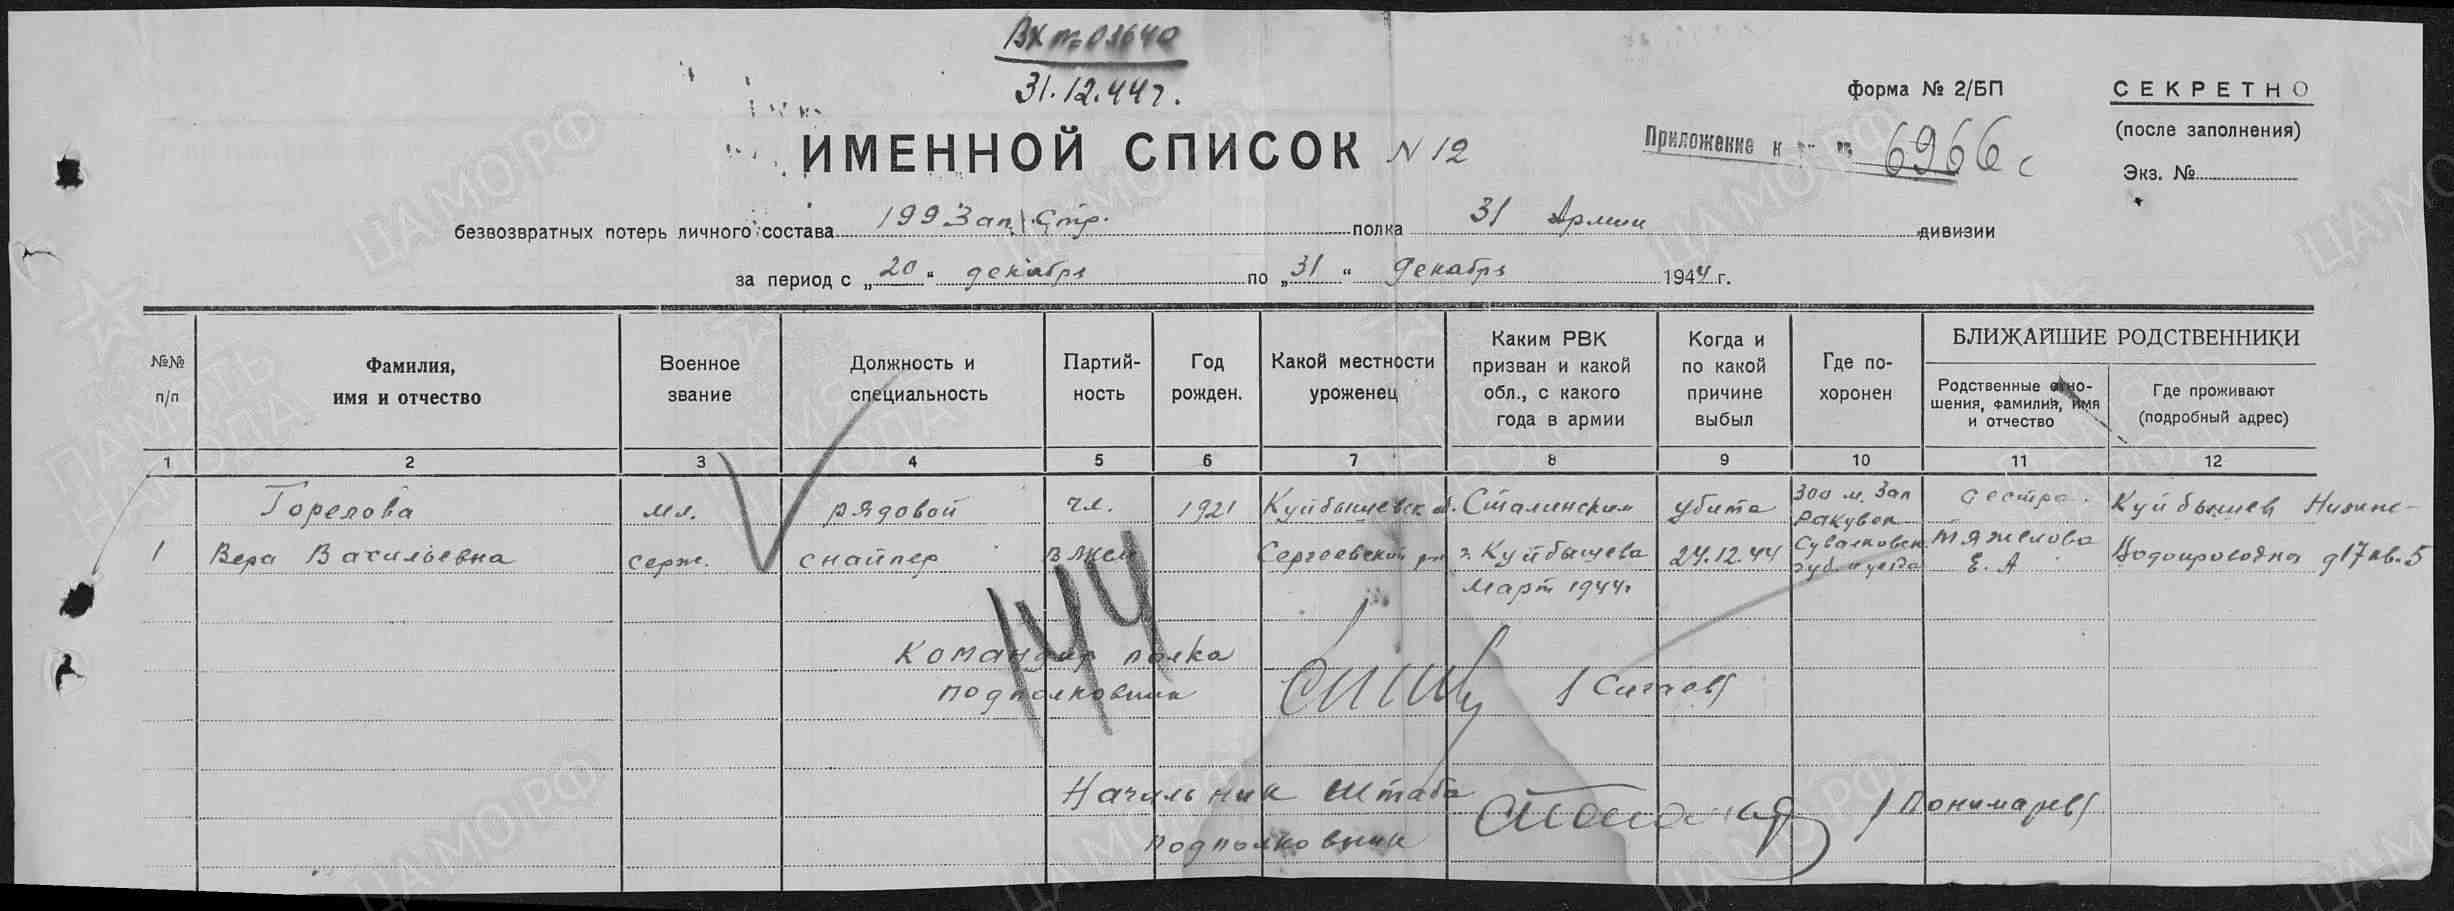 Вх № 03640
31.12.44г.
форма № 2/БП
СЕКРЕТНО
(после заполнения)
Экз. №
Приложение к 6966с
ИМЕННОЙ СПИСОК N 12
безвозвратных потерь личного состава 199 Зап. Стр. полка 31 Армии дивизии
за период с „20“ декабря по „31“ декабря 1944 г.
№№ п/п
Фамилия, имя и отчество
Военное звание
Должность и специальность
Партий-ность
Год рожден.
Какой местности уроженец
Каким РВК призван и какой обл., с какого года в армии
Когда и по какой причине выбыл
Где по-хоронен
БЛИЖАЙШИЕ РОДСТВЕННИКИ
Родственные отно-шения, фамилия, имя и отчество
Где проживают (подробный адрес)
1 2 3 4 5 6 7 8 9 10 11 12
Горелова мл. рядовой чл. 1921 Куйбышевск об. Сталинским убита 300 м. Зап сестра Куйбышев Нижне-
1 Вера Васильевна серж. снайпер ВЛКСМ Сергеевский р-н г. Куйбышева 24.12.44 Ракувек Тяжелова д17 кв.5
Март 1944г Сувалковск. губ. и уезда Е. А.
144
Командир полка
подполковник /Сигаев/
Начальник штаба
подполковник /Понимарев/
ЦАМО РФ
ПАМЯТЬ НАРОДА